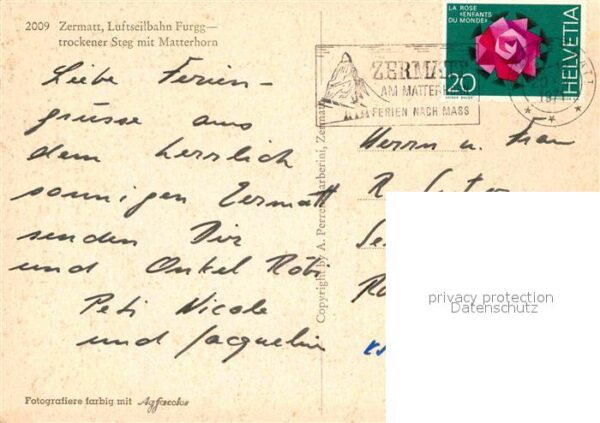 2009 Zermatt, Luftseilbahn Furgg—
trockener Steg mit Matterhorn
Liebe Ferien-
grüsse aus
dem herrlich
sonnigen Zermatt
senden Dir
und Onkel Röbi
Peti Nicole
und Jacqueline
Fotografiere farbig mit Agfacolor
Copyright by A. Perren-Barberini, Zermatt
ZERMATT
AM MATTERHORN
FERIEN NACH MASS
LA ROSE
«ENFANTS
DU MONDE»
20
HELVETIA
Herrn u. Frau
R.
privacy protection
Datenschutz